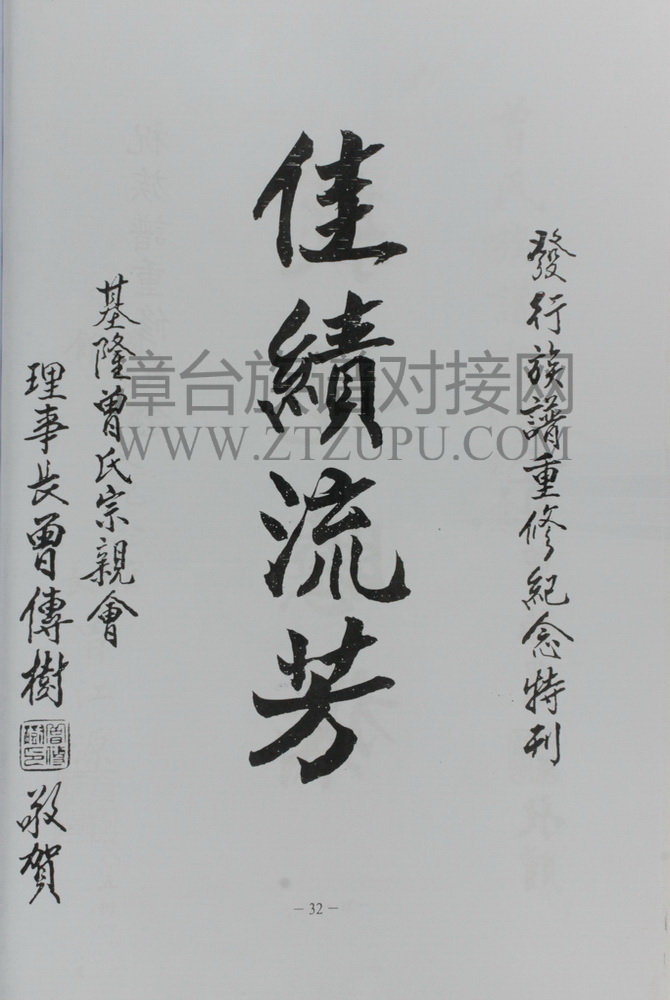 發行族譜重修紀念特刊
佳績流芳
基隆曾氏宗親會
理事長曾傳樹
曾傳樹印
敬賀
章台族谱对接网
WWW.ZTZUPU.COM
－32－